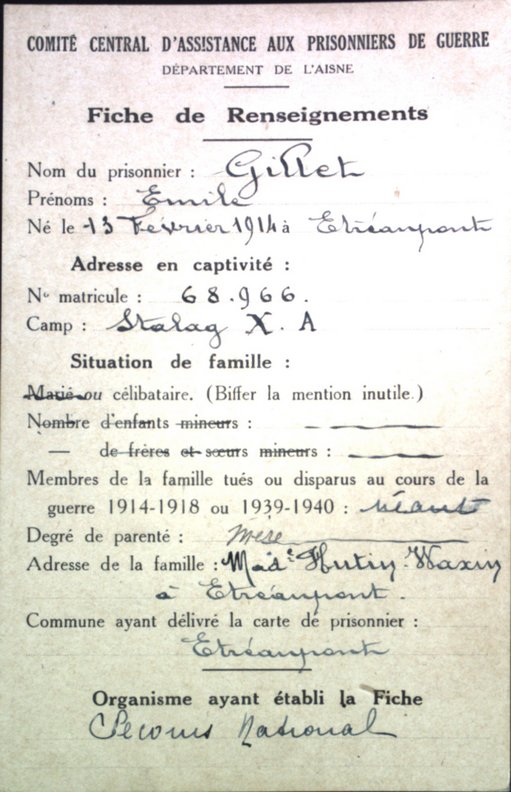 COMITÉ CENTRAL D'ASSISTANCE AUX PRISONNIERS DE GUERRE
DÉPARTEMENT DE L'AISNE
Fiche de Renseignements
Nom du prisonnier : Gillet
Prénoms : Emile
Né le 13 Février 1914 à Etréaupont
Adresse en captivité :
No matricule : 68.966.
Camp : Stalag X. A
Situation de famille :
Marié ou célibataire. (Biffer la mention inutile.)
Nombre d'enfants mineurs :
— de frères et sœurs mineurs :
Membres de la famille tués ou disparus au cours de la
guerre 1914-1918 ou 1939-1940 : néant
Degré de parenté : mère
Adresse de la famille : Made Hutin-Waxin
à Etréaupont.
Commune ayant délivré la carte de prisonnier :
Etréaupont
Organisme ayant établi la Fiche
Secours National